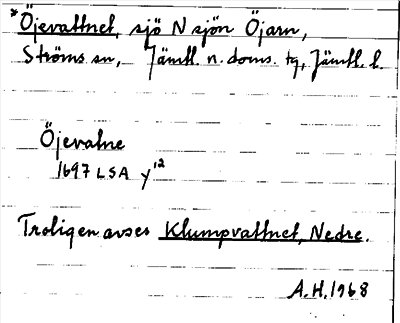 *Öjevattnet, sjö N sjön Öjarn,
Ströms sn, Jämtl. n. doms. tg, Jämtl. l.
Öjevatne
1697 LSA y¹²
Troligen avses Klumpvattnet, Nedre.
A.H. 1968